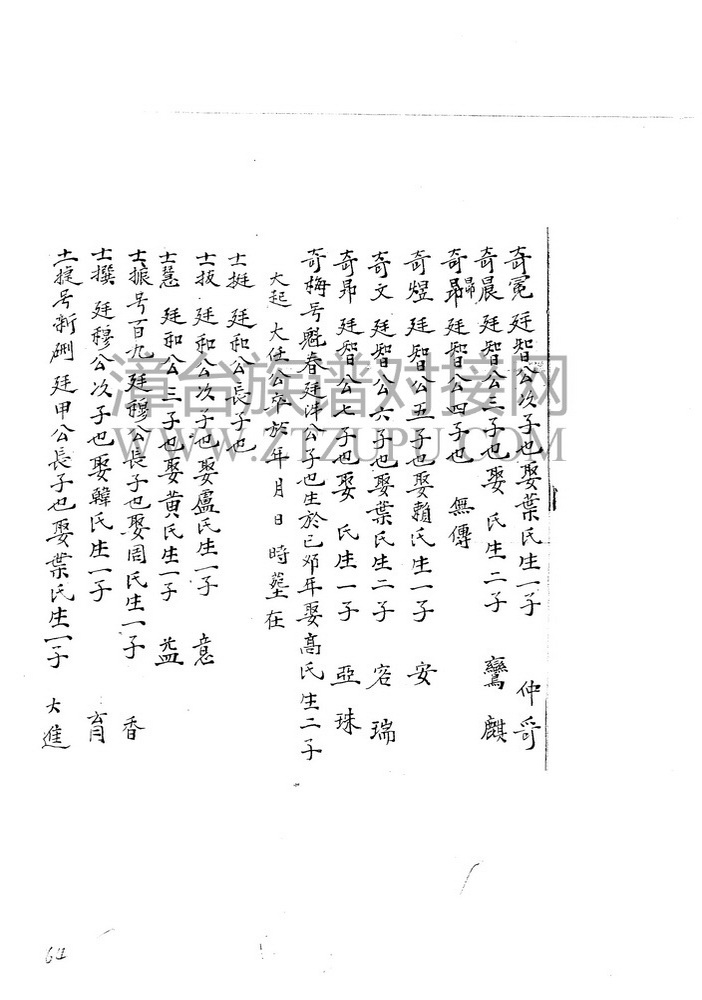 奇冕 廷智公次子也娶葉氏生一子 仲哥
奇晨 廷智公三子也娶 氏生二子 鸞麒
奇昴 廷智公四子也 無傳
奇煜 廷智公五子也娶賴氏生一子 安
奇文 廷智公六子也娶葉氏生二子 容瑞
奇昂 廷智公七子也娶 氏生一子 亞珠
奇梅号魁春廷泮公子也生於己邜年娶高氏生二子
大起 大任公卒於年月日時塟在
士挺 廷和公長子也
士扳 廷和公次子也娶盧氏生一子 意
士慧 廷和公三子也娶黄氏生一子 益
士振号百九廷穆公長子也娶周氏生一子 香
士撰 廷穆公次子也娶韓氏生一子 育
士捷号漸 廷甲公長子也娶葉氏生一子 大進
漳台族谱对接网
WWW.ZTZUPU.COM
64